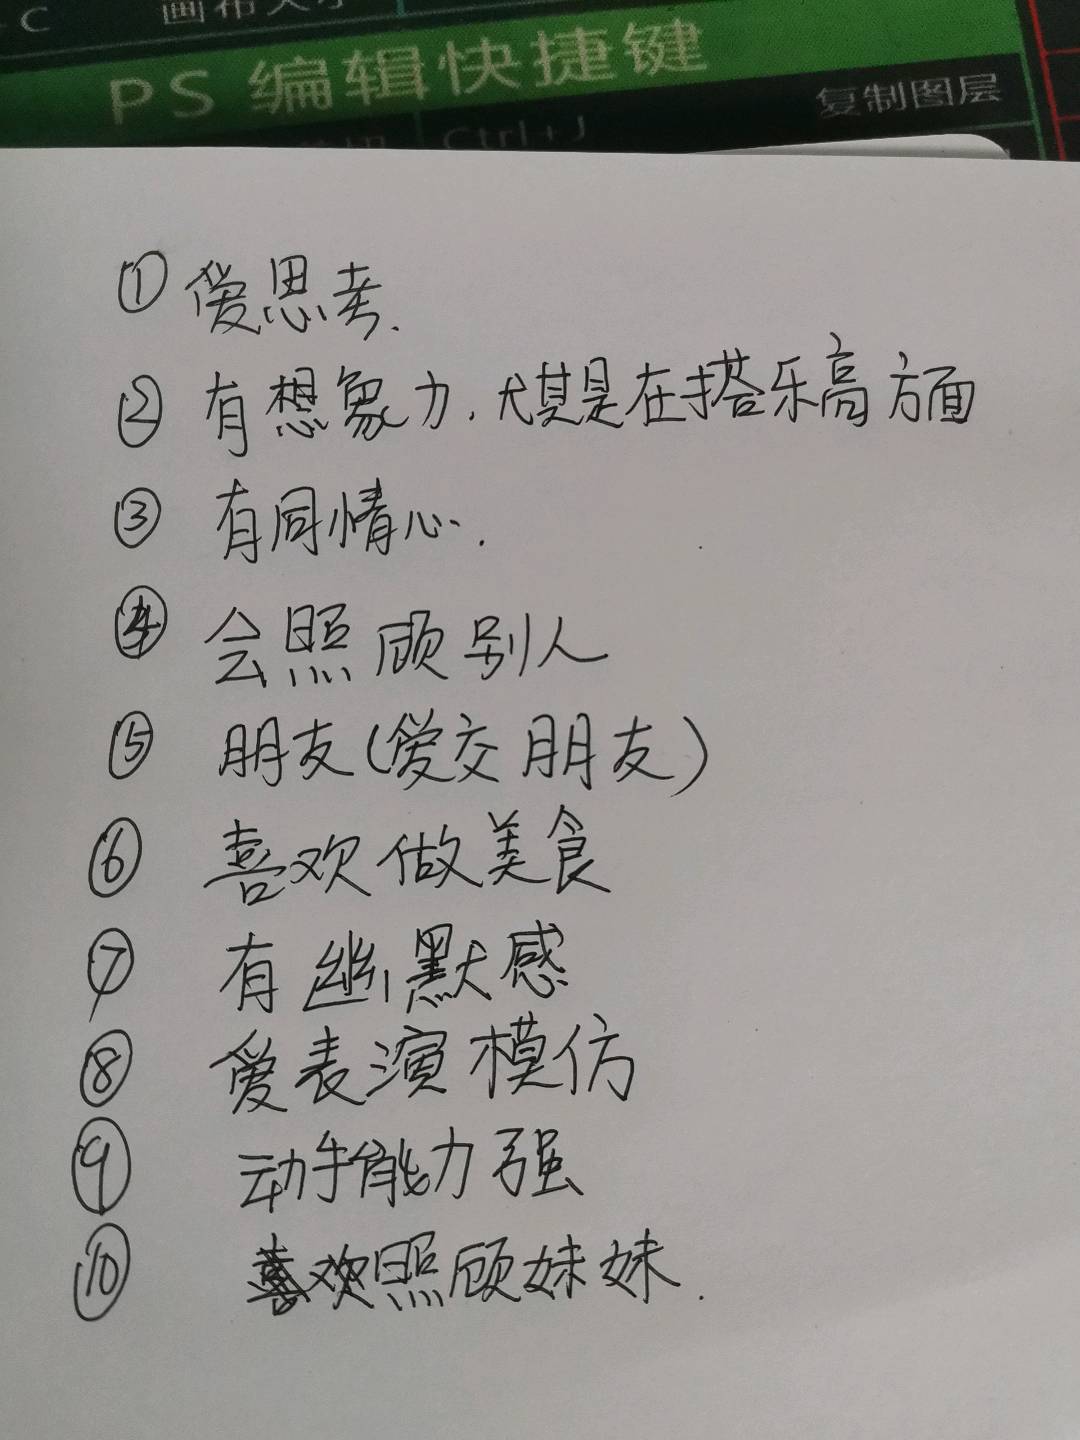 C 画布大小
PS 编辑快捷键
Ctrl+J 复制图层
① 爱思考.
② 有想象力.尤其是在搭乐高方面
③ 有同情心.
④ 会照顾别人
⑤ 朋友(爱交朋友)
⑥ 喜欢做美食
⑦ 有幽默感
⑧ 爱表演模仿
⑨ 动手能力强
⑩ 喜欢照顾妹妹.